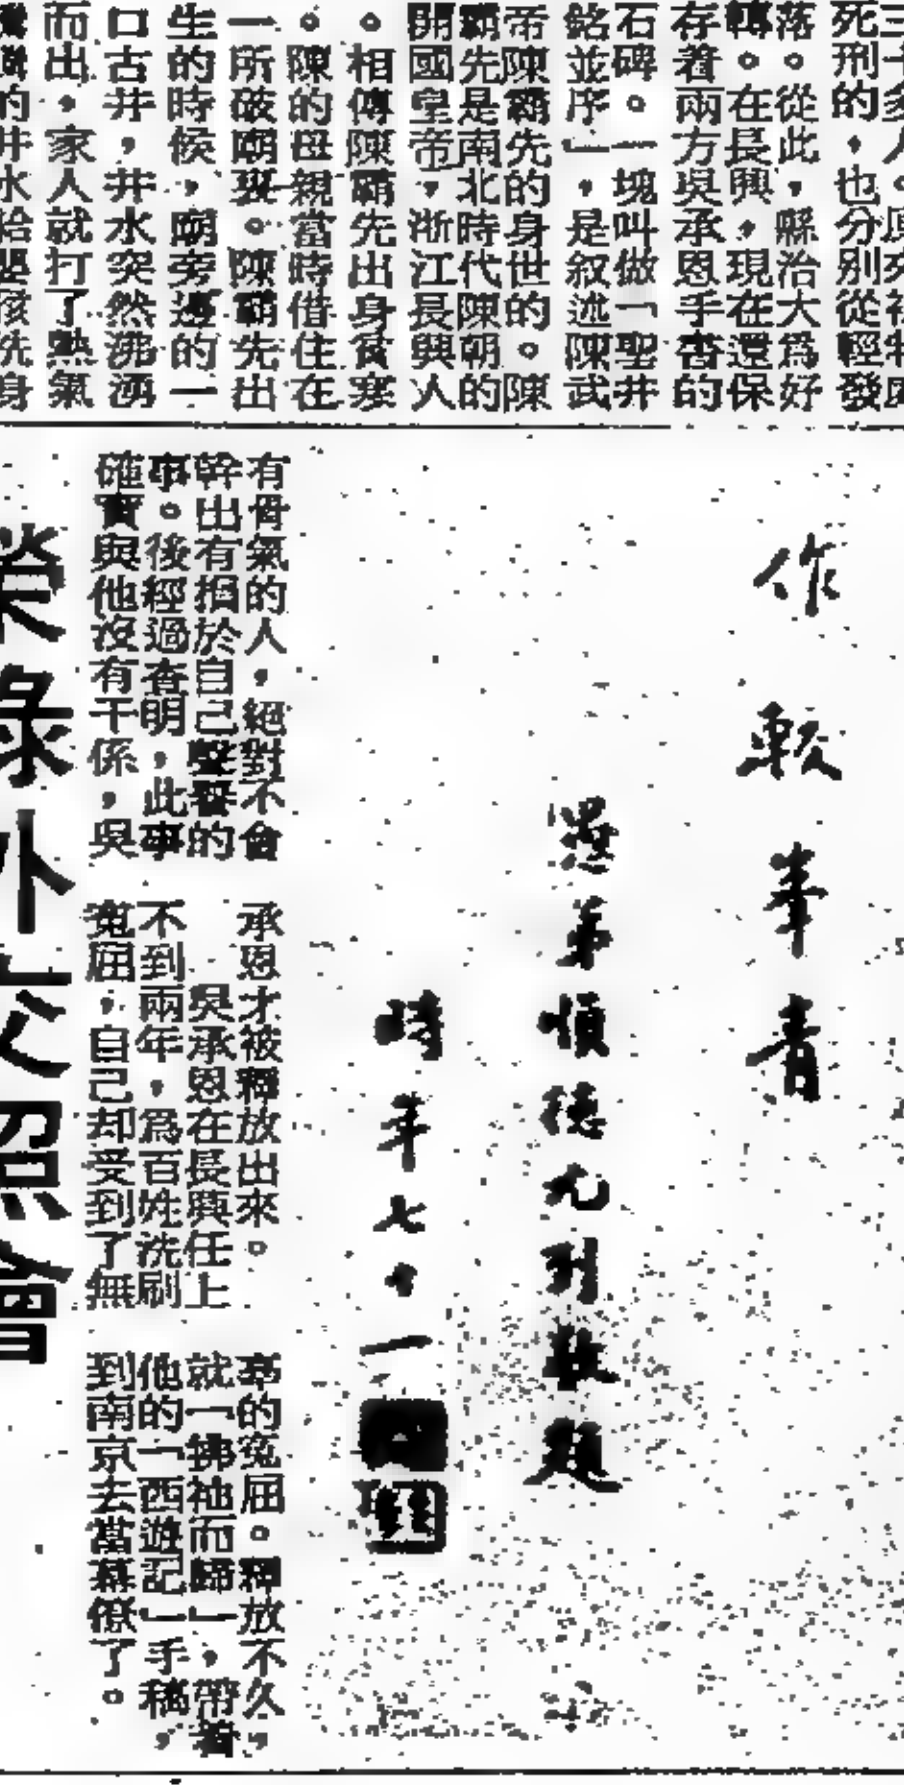 三十多人。原來被判
死刑的,也分別從輕發
落。從此,縣治大爲好
轉。在長興,現在還保
存着兩方吳承恩手書的
石碑。一塊叫做「聖井
銘並序」,是叙述陳武
帝陳霸先的身世的。陳
霸先是南北時代陳朝的
開國皇帝,浙江長興人
。相傳陳霸先出身貧寒
。陳的母親當時借住在
一所破廟裏。陳霸先出
生的時候,廟旁邊的一
口古井,井水突然沸湧
而出,家人就打了熱氣
的井水給嬰孩洗身
作
軟
峯
書
愚弟順德尤列敬題
時年七十一
有骨氣的人,絕對不會
幹出有損於自己聲譽的
事。後經過查明,此事
確實與他沒有干係,吳
承恩才被釋放出來。
吳承恩在長興任上
不到兩年,爲百姓洗刷
寃屈,自己却受到了無
辜的寃屈。釋放不久,
就「拂袖而歸」,帶着
他的「西遊記」手稿,
到南京去當幕僚了。
榮祿外交照會